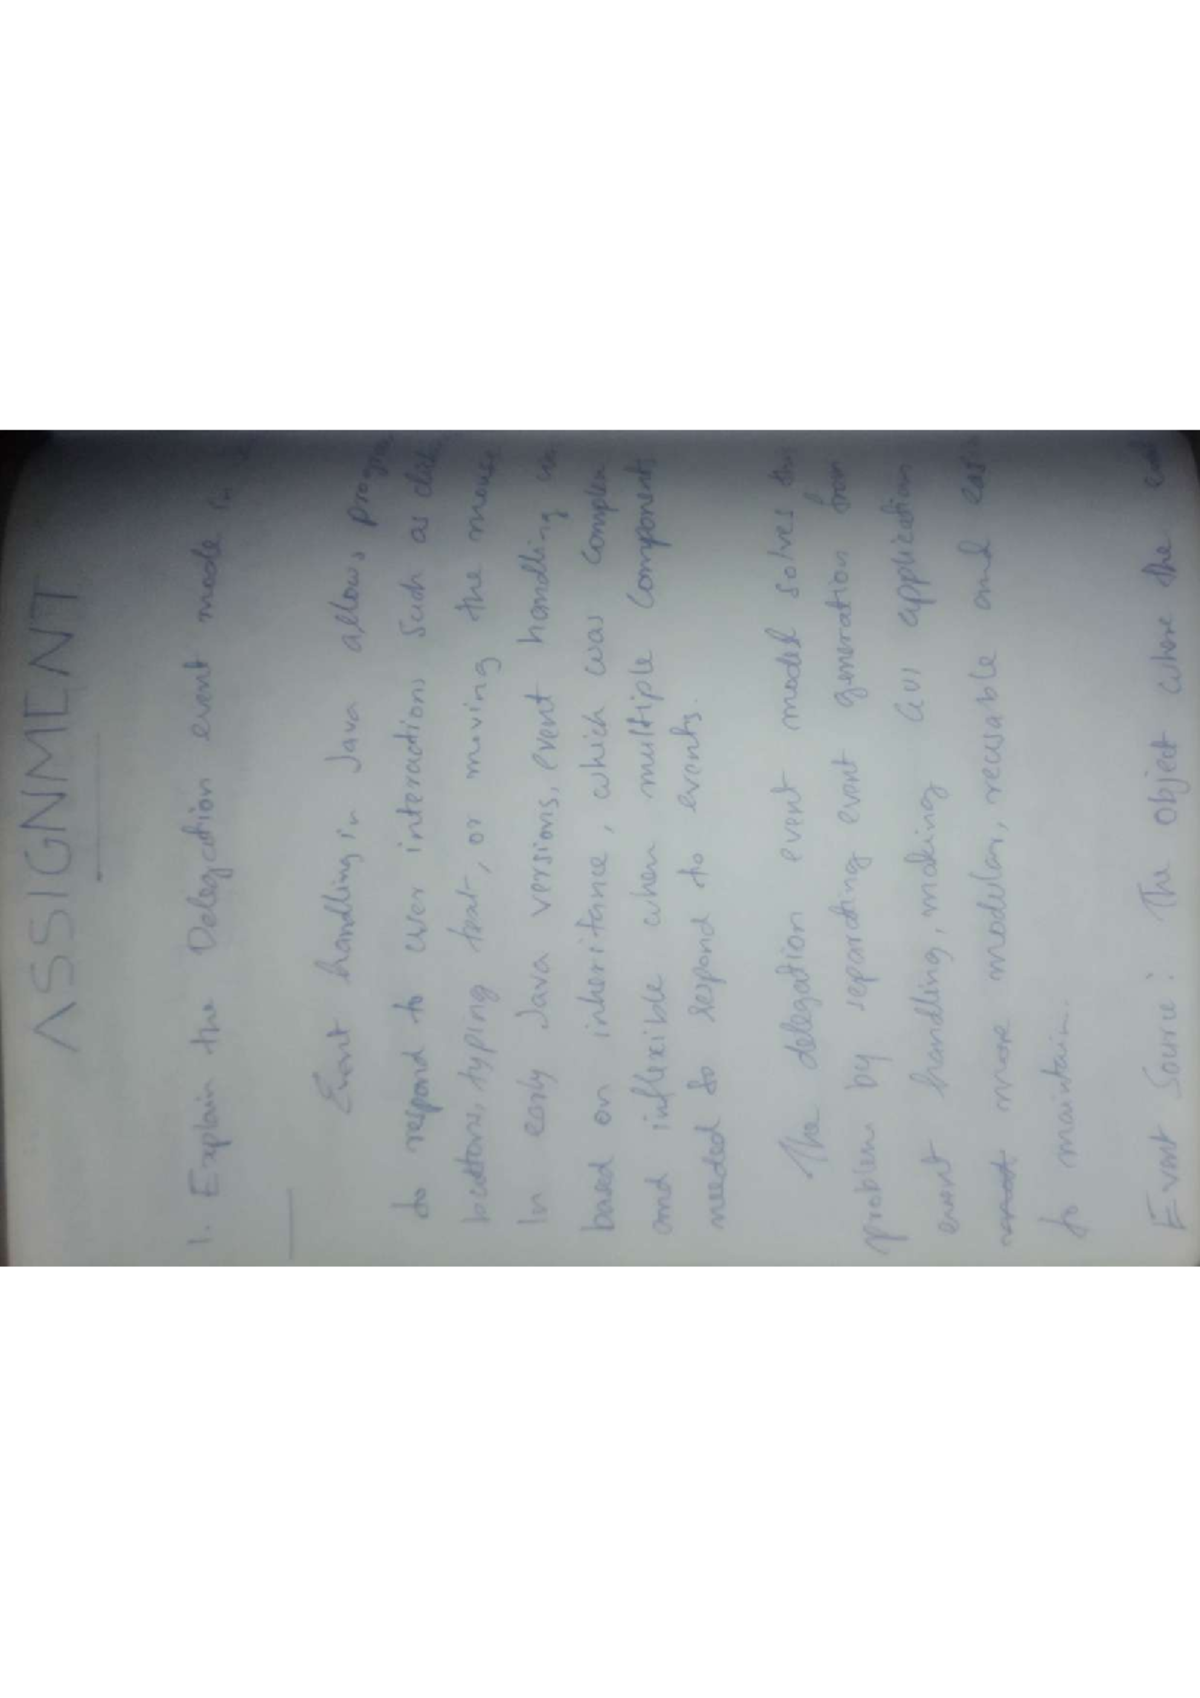 ASSIGNMENT
1. Explain the Delegation event mode in
Event handling in Java allows
to respond to user interactions such as
buttons, typing text, or moving the mouse
In early Java versions, event handling
based on inheritance, which was complex
and inflexible when multiple components
needed to respond to events.
The delegation event model solves
problem by separating event generation from
event handling, making GUI application
more modular, reusable and
to maintain.
Event Source: The object where the